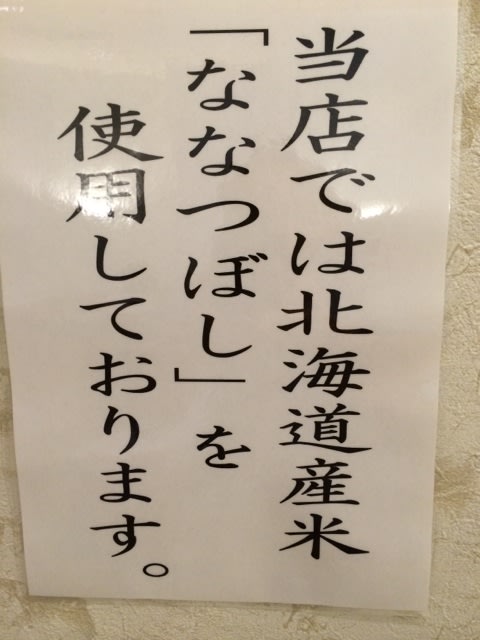 当店では北海道産米
「ななつぼし」を
使用しております。